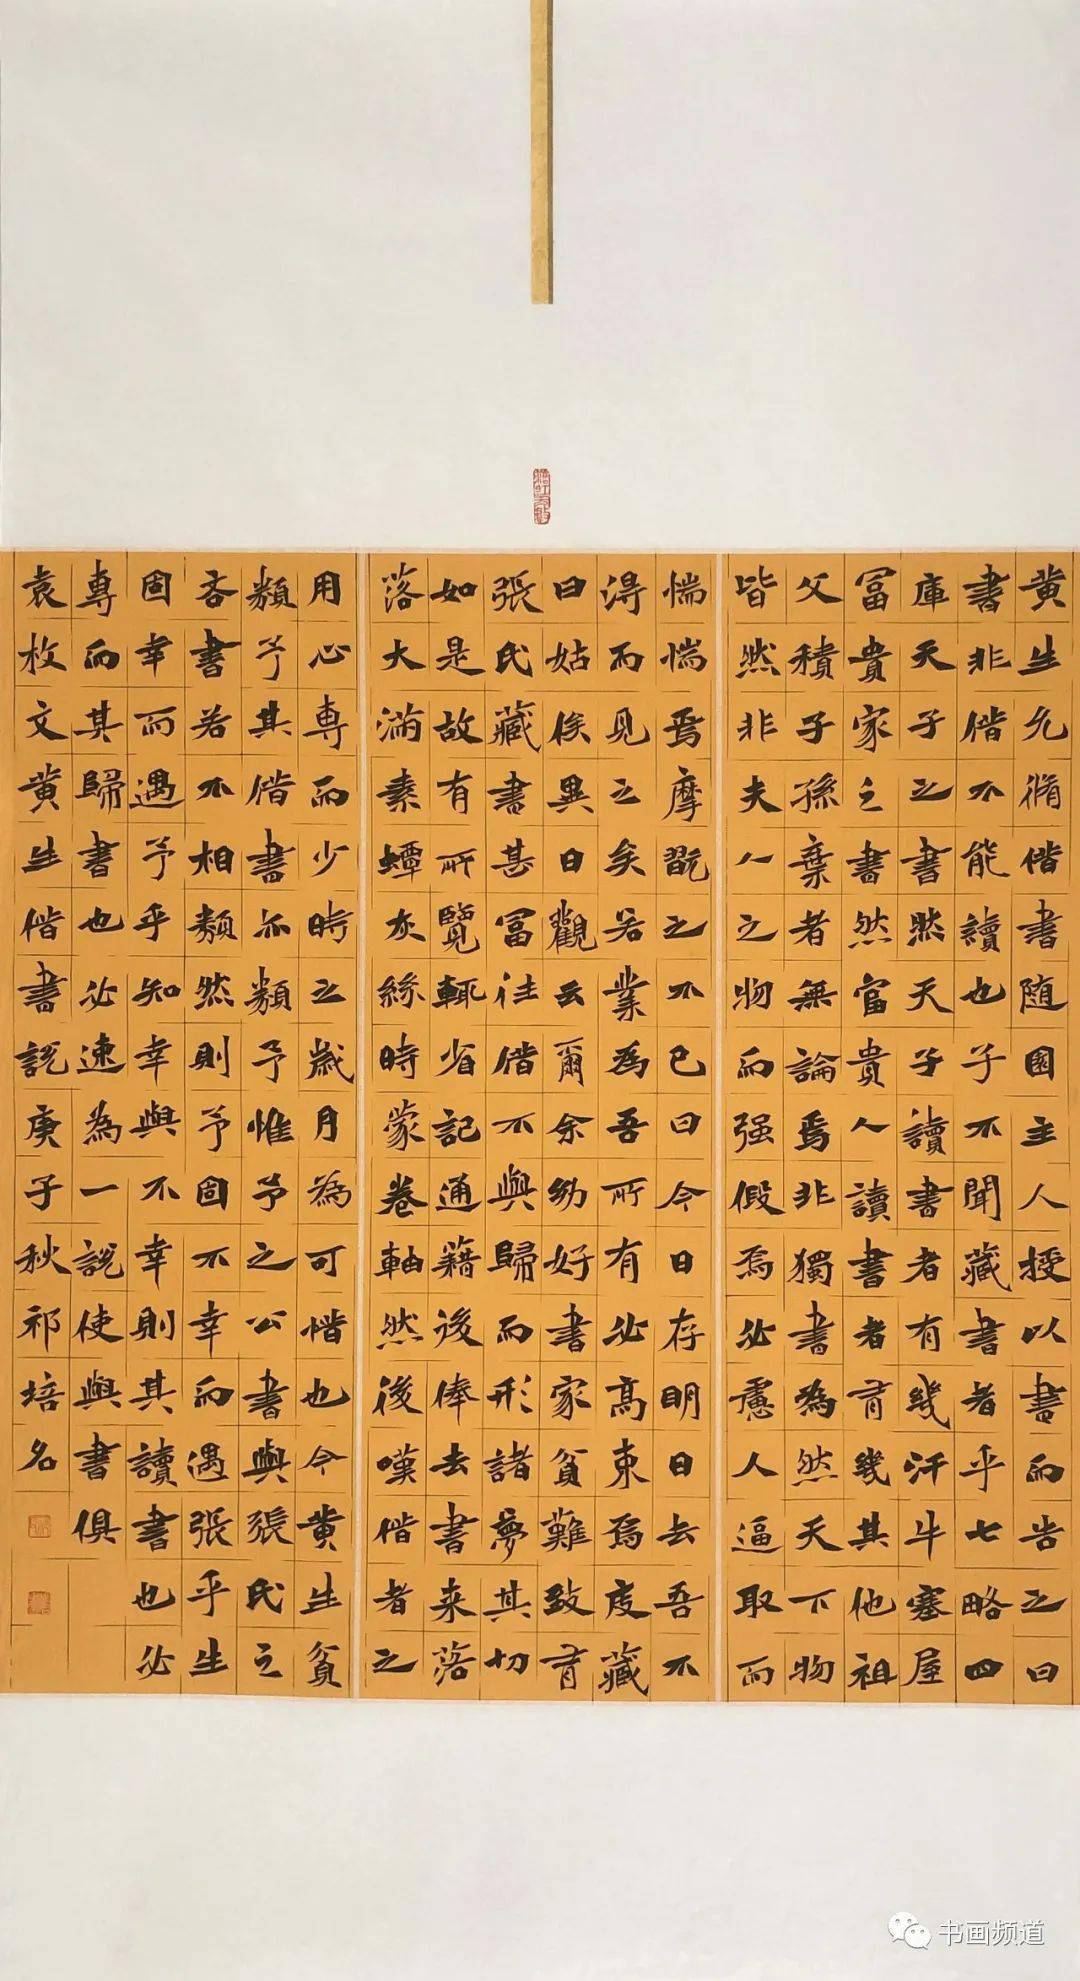 黄生允脩借書随園主人授以書而告之曰
書非借不能讀也子不聞藏書者乎七略四
庫天子之書然天子讀書者有幾汗牛塞屋
冨貴家之書然富貴人讀書者有幾其他祖
父積子孫棄者無論焉非獨書為然天下物
皆然非夫人之物而强假焉必慮人逼取而
惴惴焉摩翫之不已曰今日存明日去吾不
淂而見之矣若業為吾所有必髙束焉庋藏
曰姑俟異日觀云爾余幼好書家貧難致有
張氏藏書甚冨往借不與歸而形諸夢其切
如是故有所覽輒省記通籍後俸去書来落
落大滿素蟫灰絲時蒙卷軸然後嘆借者之
用心専而少時之歲月為可惜也今黄生貧
類予其借書亦類予惟予之公書與張氏之
吝書若不相類然則予固不幸而遇張乎生
固幸而遇予乎知幸與不幸則其讀書也必
專而其歸書也必速為一説使與書俱
袁枚文黄生借書説庚子秋祁培名
书画频道